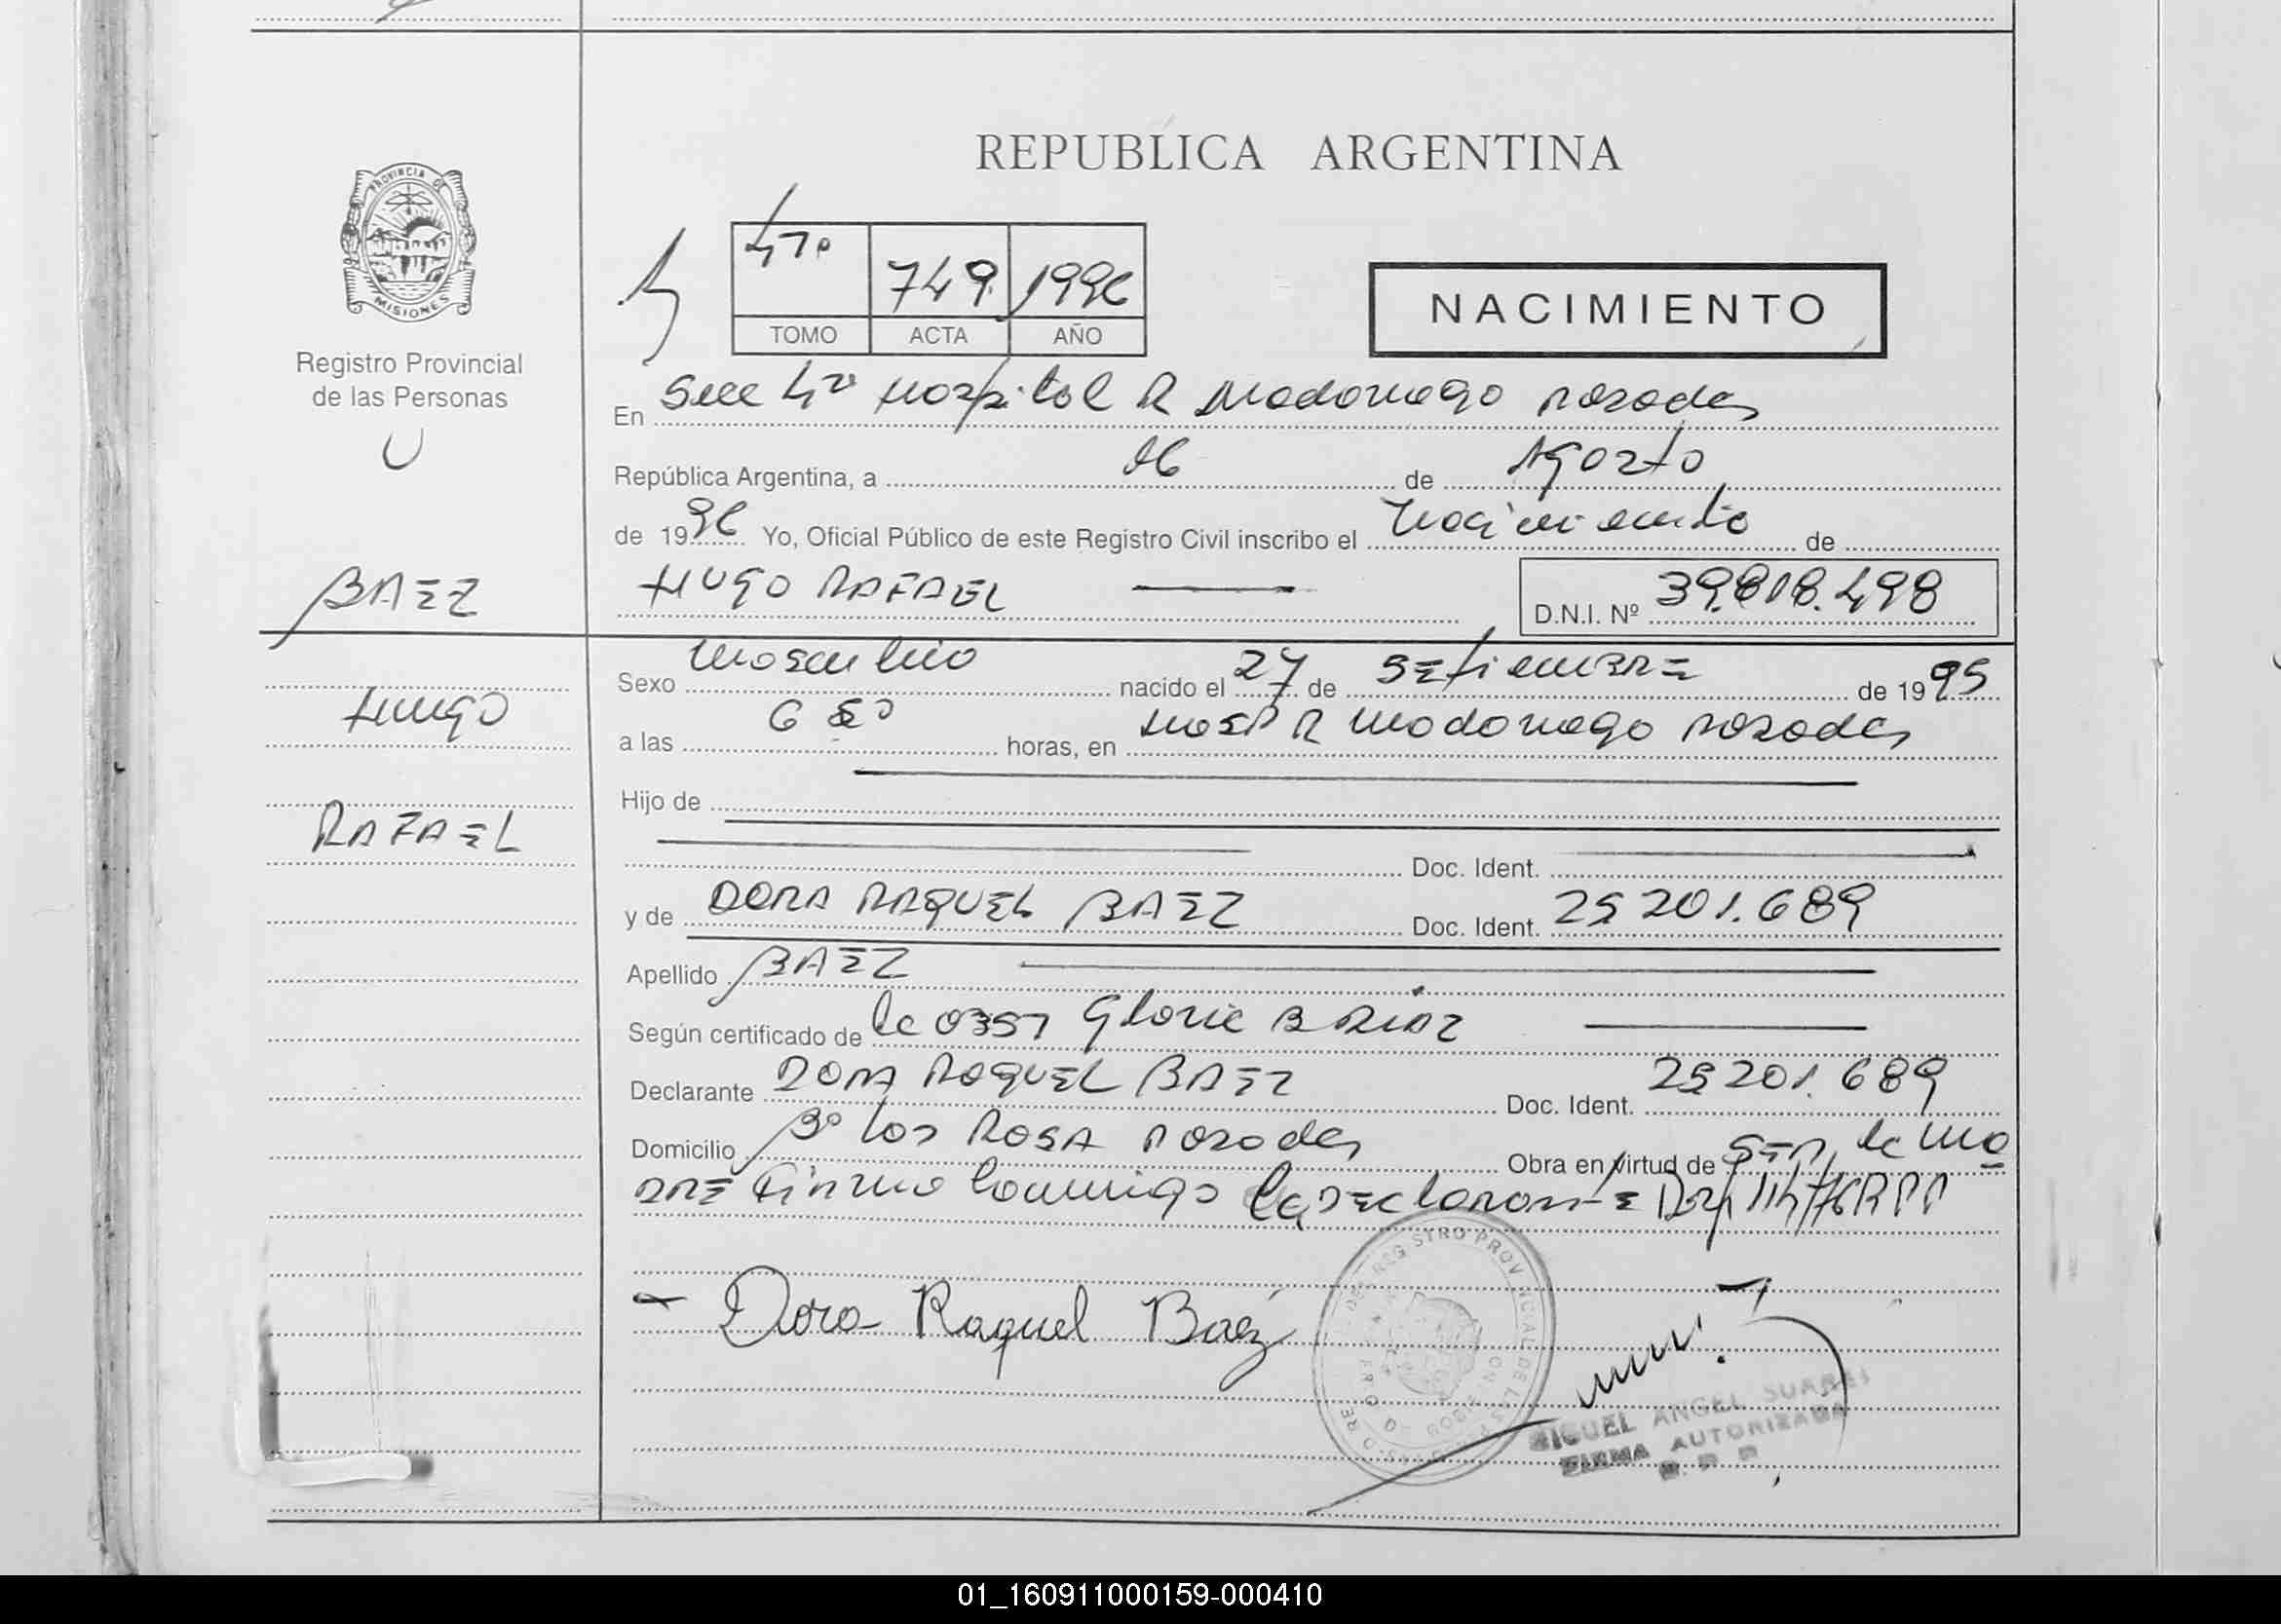 REPUBLICA ARGENTINA
PROVINCIA DE
MISIONES
Registro Provincial
de las Personas
4to 749 1996
TOMO ACTA AÑO
NACIMIENTO
En Secc 4ta Hospital R Madariaga Posadas
República Argentina, a 06 de Agosto
de 1996 Yo, Oficial Público de este Registro Civil inscribo el Nacimiento de
BAEZ
HUGO RAFAEL D.N.I. Nº 39.818.498
Sexo Masculino nacido el 27 de SEtiEMBRE de 1995
HUGO
a las 6 horas, en HOSP R Madariaga Posadas
Hijo de
RAFAEL
Doc. Ident.
y de DORA RAQUEL BAEZ Doc. Ident. 25 201.689
Apellido BAEZ
Según certificado de la OBST Gloria B DIAZ
Declarante DORA RAQUEL BAEZ Doc. Ident. 25 201.689
Domicilio Bº Los ROSA Posadas Obra en virtud de SER la MA
DRE Firma Conmigo la DEClarantE
Dora Raquel Baéz
REGISTRO PROVINCIAL DE LAS
MIGUEL ANGEL SUAREZ
FIRMA AUTORIZADA
01_160911000159-000410